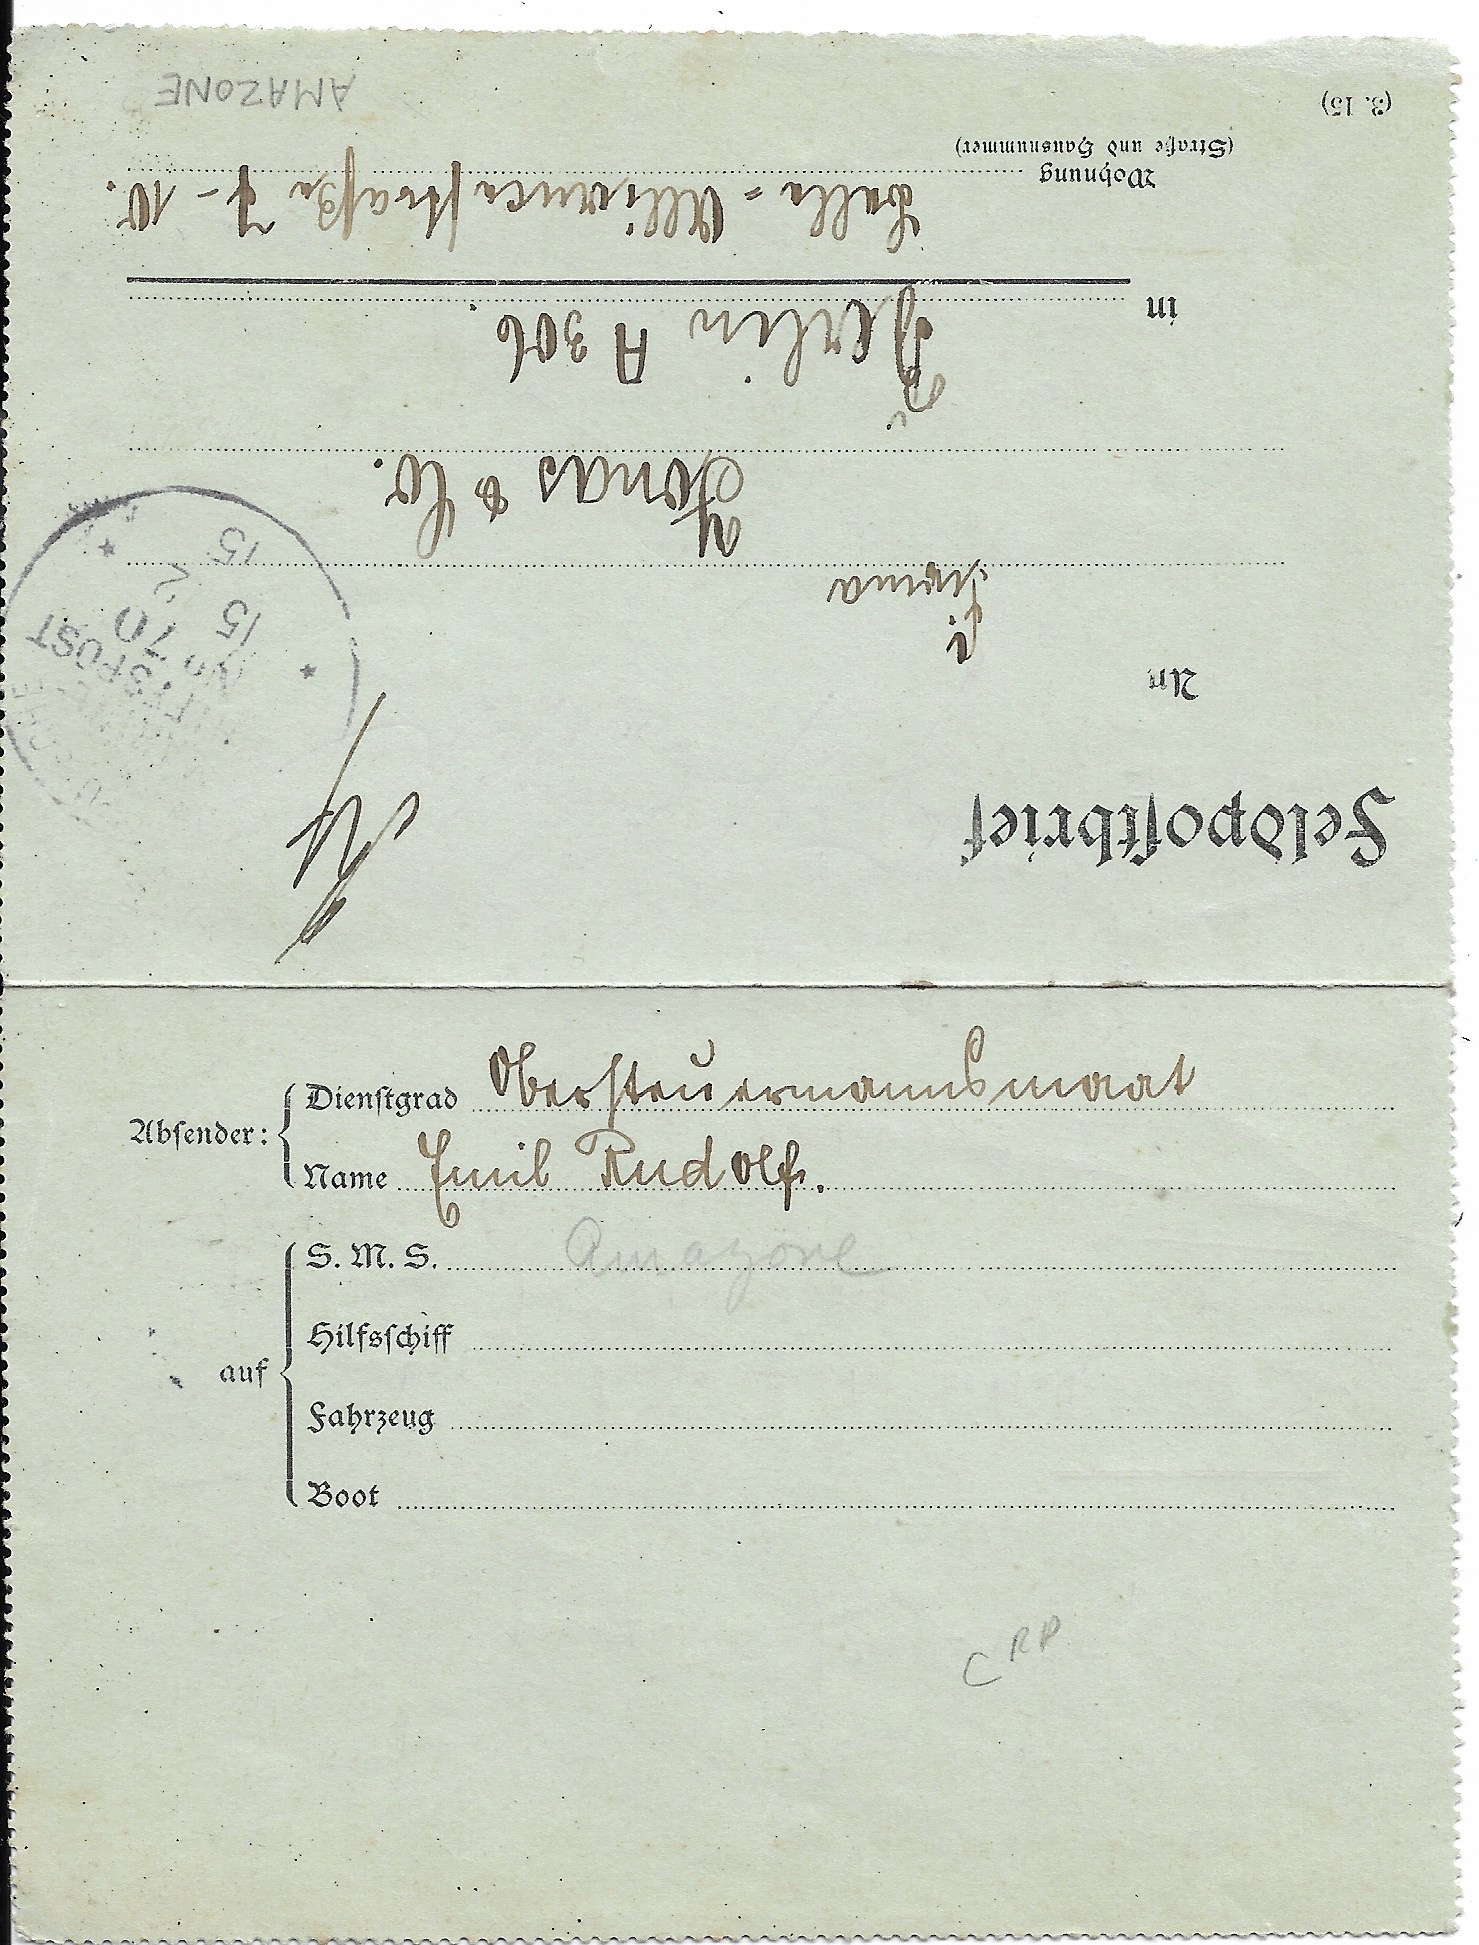 Feldpostbrief
An
Firma
Jonas & Co.
in
Berlin A 306.
Wohnung
(Straße und Hausnummer)
Belle-Alliancestraße 7-10.
(3. 15)
AMAZONE
15
15
2
No 70
SPOST
Absender:
Dienstgrad Obersteuermannsmaat
Name Emil Rudolf.
auf
S. M. S. Amazone
Hilfsschiff
Fahrzeug
Boot
CRP